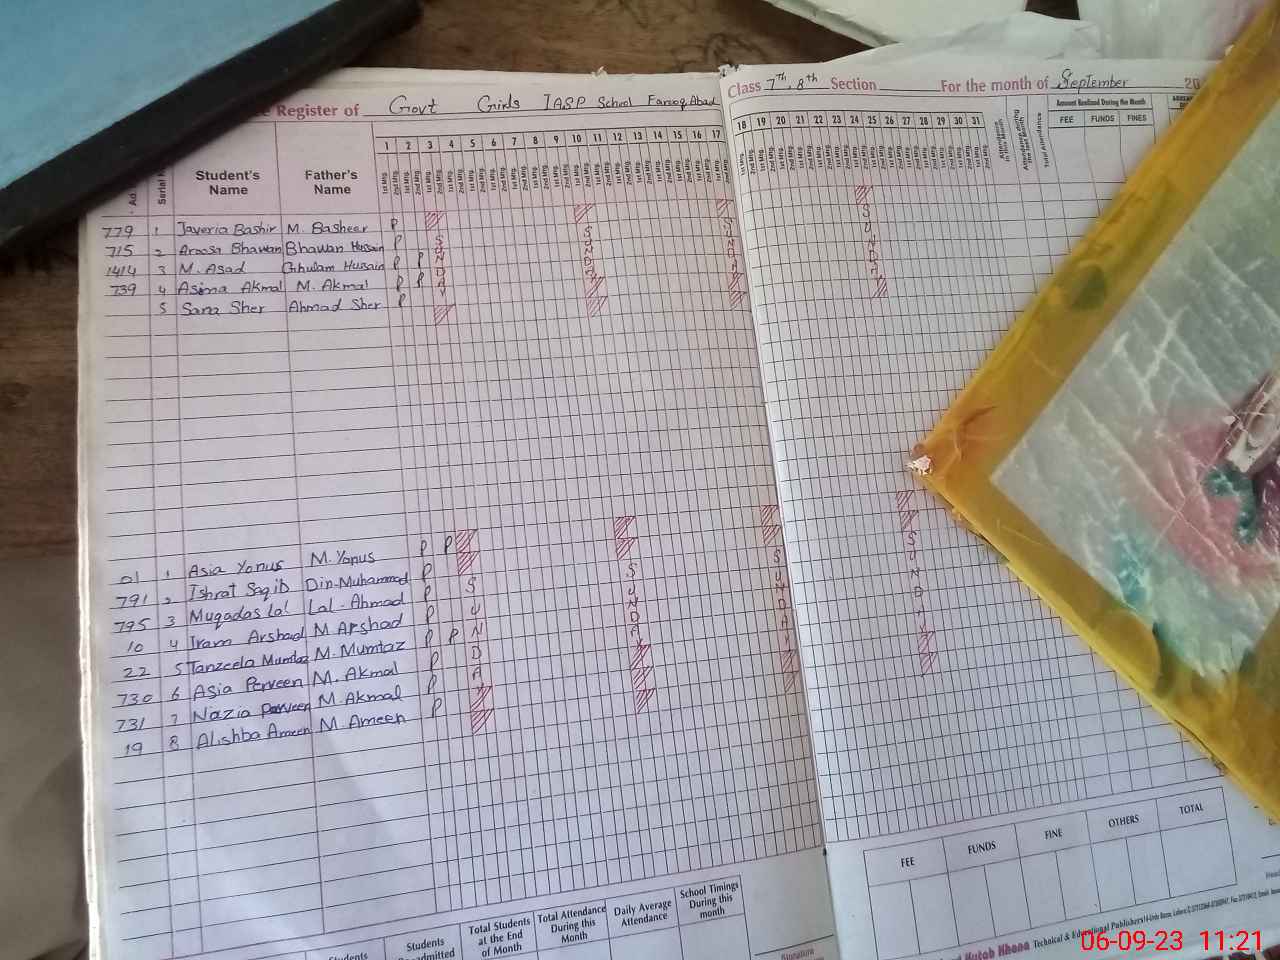 Register of Govt Girls IASP School Farooq Abad
Class 7th, 8th Section For the month of September 20
Serial
Student's Name
Father's Name
1 2 3 4 5 6 7 8 9 10 11 12 13 14 15 16 17
18 19 20 21 22 23 24 25 26 27 28 29 30 31
1st Mtg. 2nd Mtg.
Total Attendance
Amount Realized During the Month
FEE FUNDS FINES
779 1 Javeria Bashir M. Basheer P
715 2 Aroosa Bhawan Bhawan Hussain P
1414 3 M. Asad Ghulam Hussain P P
739 4 Asima Akmal M. Akmal P P
5 Sara Sher Ahmad Sher P
SUNDAY
SUNDAY
SUNDAY
SUNDAY
01 1 Asia Yonus M. Yonus P P
791 2 Ishrat Saqib Din-Muhammad P
795 3 Muqadas Lal Lal-Ahmad P
10 4 Iram Arshad M Arshad P P
22 5 Tanzeela Mumtaz M. Mumtaz P
730 6 Asia Perveen M. Akmal P
731 7 Nazia Parveen M. Akmal P
19 8 Alishba Ameen M. Ameen
SUNDA
SUNDAY
SUNDAY
SUNDAY
Students
Students
Total Students at the End of Month
Total Attendance During this Month
Daily Average Attendance
School Timings During this month
Signature
FEE FUNDS FINE OTHERS TOTAL
Kutab Khana Technical & Educational Publishers
06-09-23 11:21